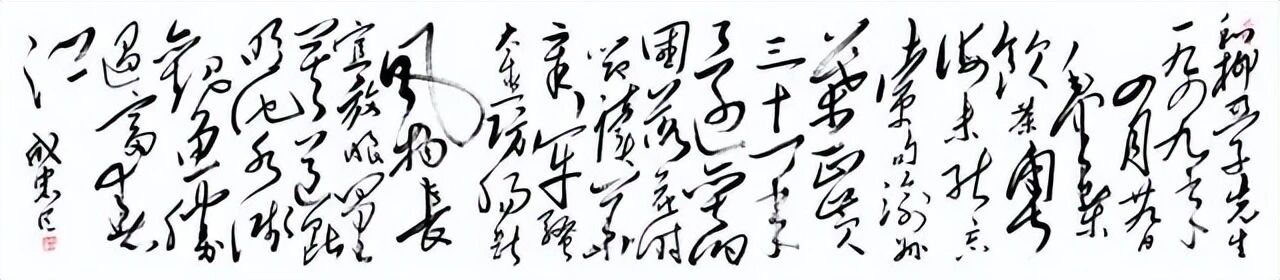 和柳亚子先生
一九四九年
四月廿九日
饮茶粤
海未能忘
索句渝州
葉正黄
三十一年
还旧
國落花时
节读華
章牢骚
太盛防肠断
风物長
宜放眼量
莫道昆
明池水浅
观鱼勝
过富春
江
成忠